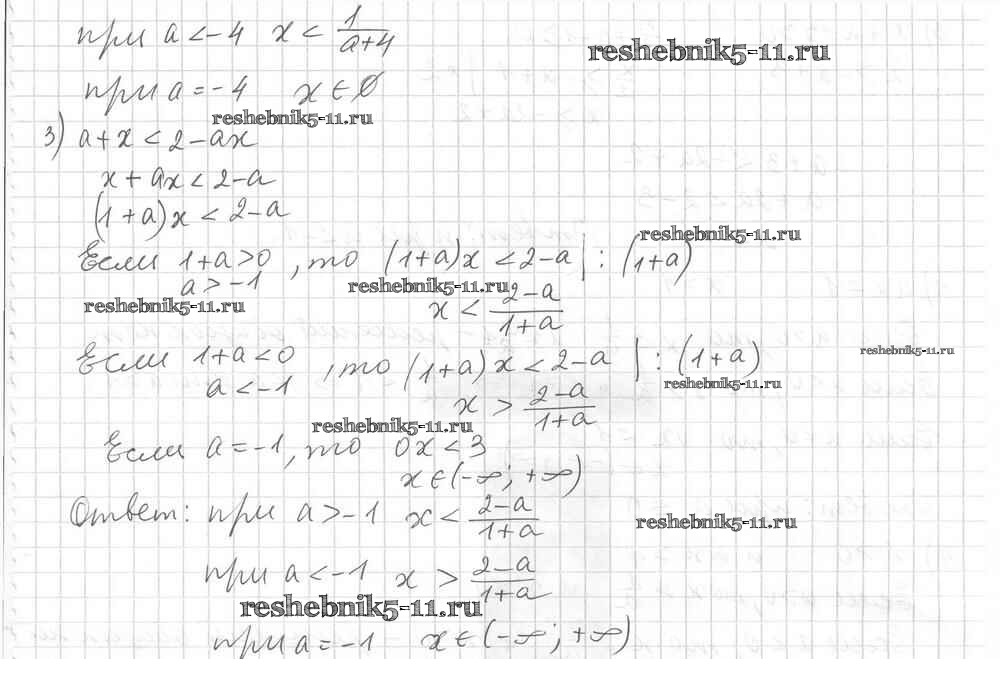 при a < -4 x < 1/(a+4)
reshebnik5-11.ru
при a = -4 x ∈ ∅
reshebnik5-11.ru
3) a + x < 2 - ax
x + ax < 2 - a
(1 + a)x < 2 - a
reshebnik5-11.ru
Если 1+a > 0, то (1+a)x < 2-a | : (1+a)
a > -1
reshebnik5-11.ru
reshebnik5-11.ru
x < (2-a)/(1+a)
Если 1+a < 0, то (1+a)x < 2-a | : (1+a)
reshebnik5-11.ru
a < -1
reshebnik5-11.ru
x > (2-a)/(1+a)
reshebnik5-11.ru
Если a = -1, то 0x < 3
x ∈ (-∞; +∞)
Ответ: при a > -1 x < (2-a)/(1+a)
reshebnik5-11.ru
при a < -1 x > (2-a)/(1+a)
reshebnik5-11.ru
при a = -1 x ∈ (-∞; +∞)